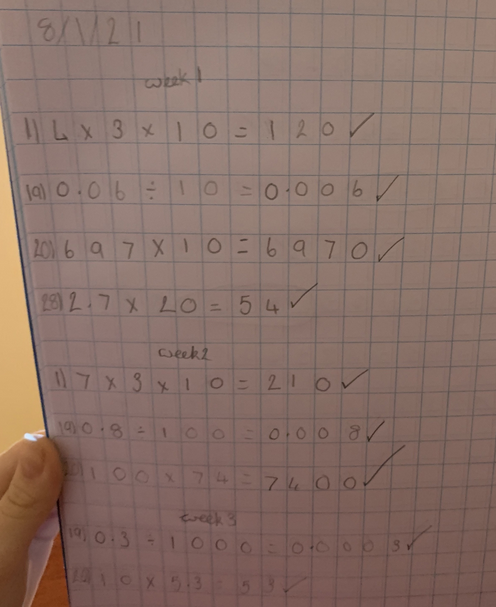 8/1/21
week 1
1) 4 x 3 x 10 = 120 ✓
19) 0.06 ÷ 10 = 0.006 ✓
20) 697 x 10 = 6970 ✓
28) 2.7 x 20 = 54 ✓
week 2
1) 7 x 3 x 10 = 210 ✓
19) 0.8 ÷ 100 = 0.008 ✓
100 x 74 = 7400 ✓
week 3
19) 0.3 ÷ 1000 = 0.0003 ✓
10 x 5.3 = 53 ✓